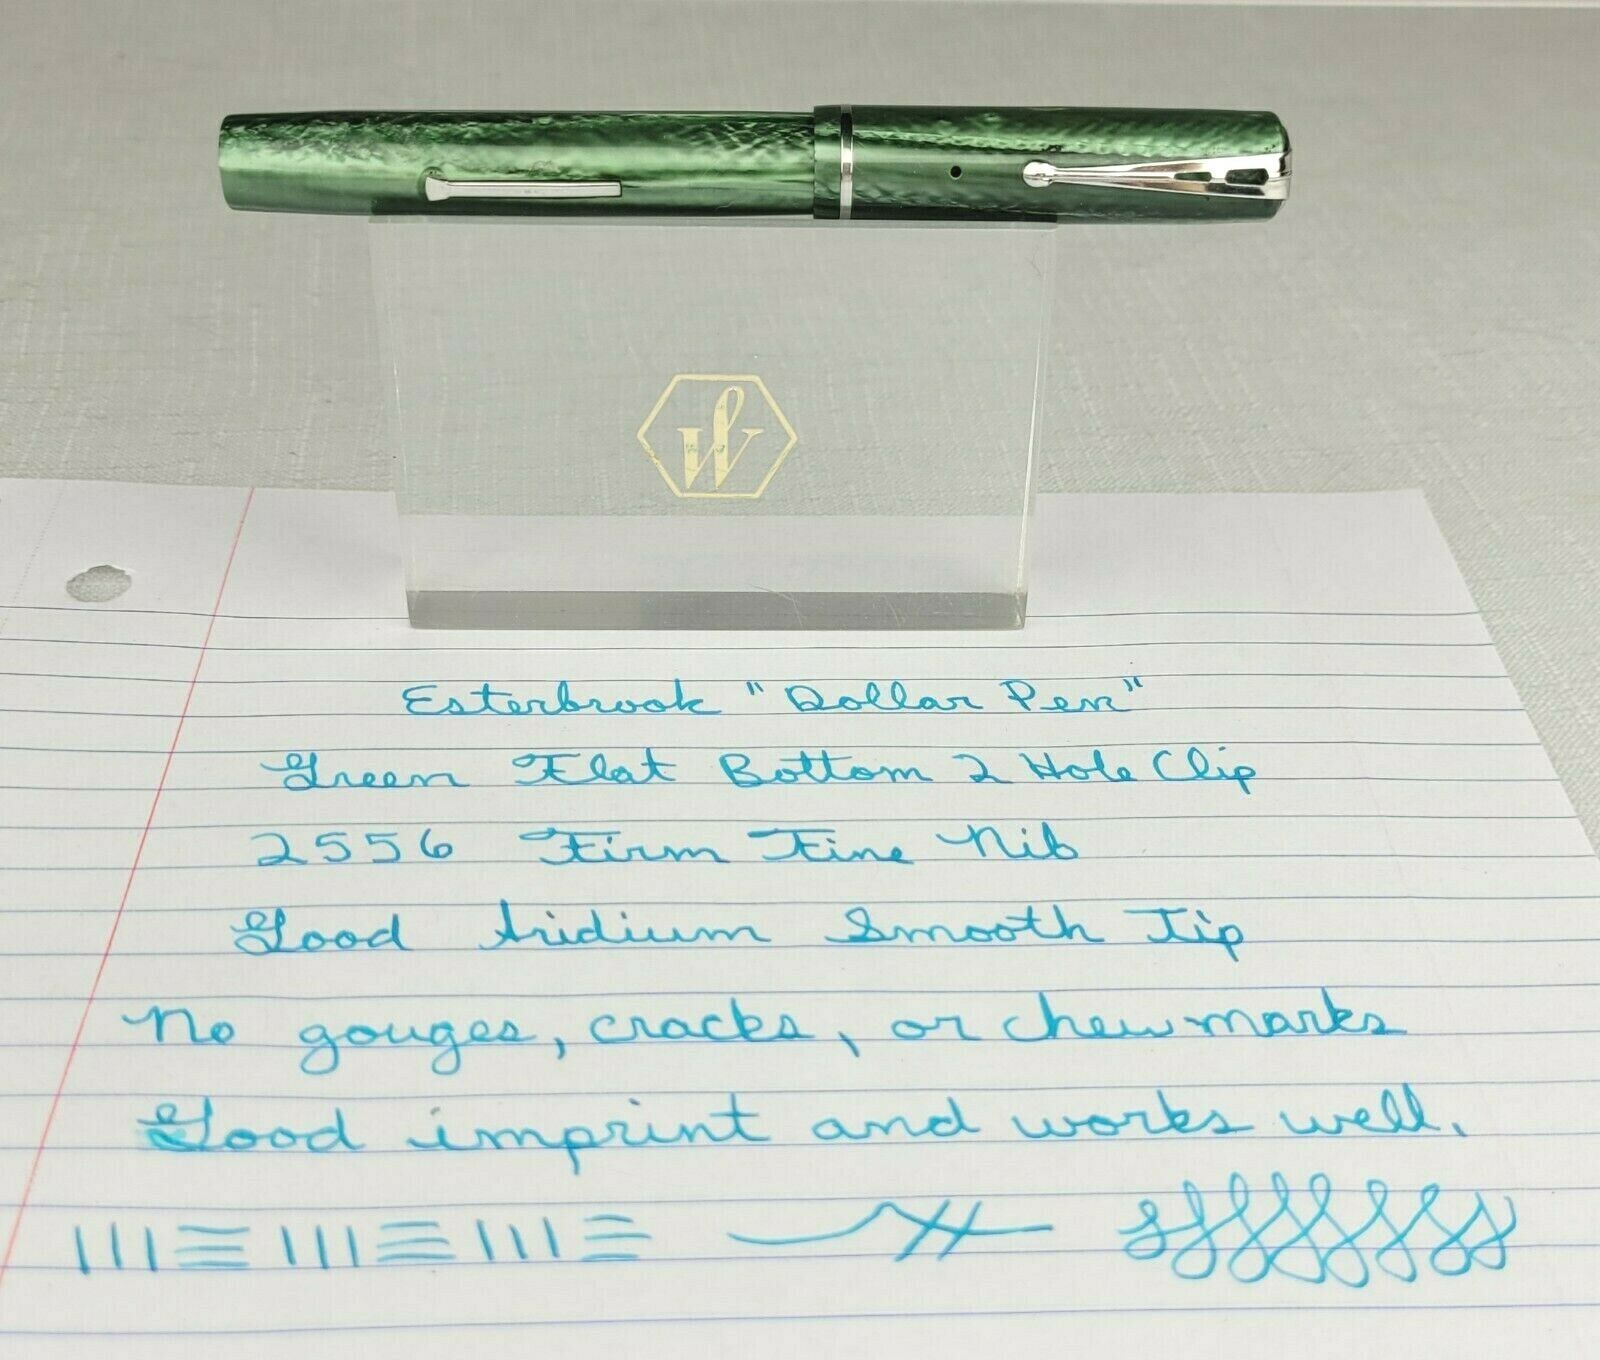 W
Esterbrook "Dollar Pen"
Green Flat Bottom 2 Hole Clip
2556 Firm Fine Nib
Good Iridium Smooth Tip
No gouges, cracks, or chew marks
Good imprint and works well.